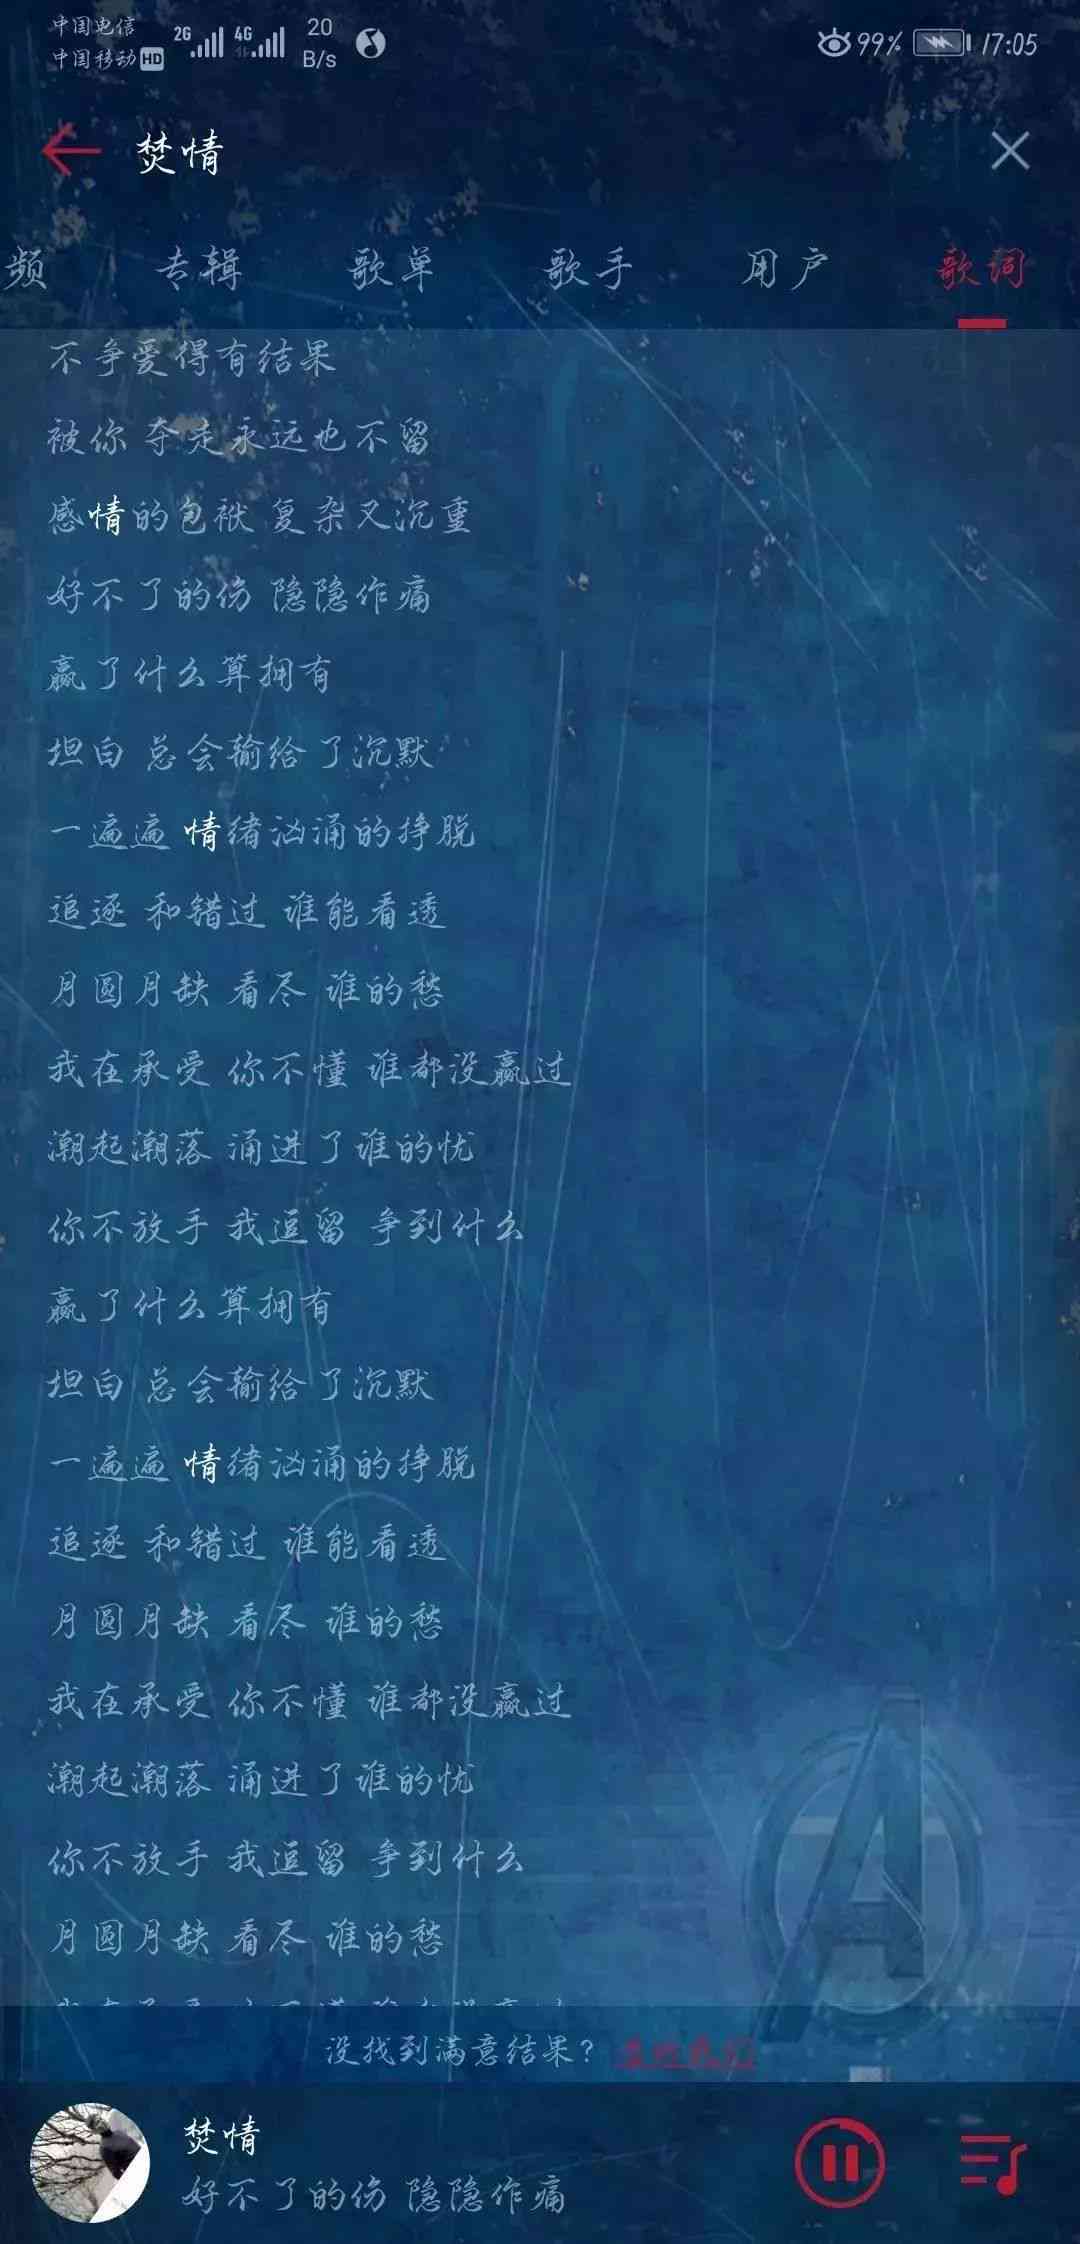 中国电信
中国移动 HD 2G 4G 20 B/s 99% 17:05
焚情
频 专辑 歌单 歌手 用户 歌词
不争爱得有结果
被你 夺走永远也不留
感情的包袱 复杂又沉重
好不了的伤 隐隐作痛
赢了什么算拥有
坦白 总会输给了沉默
一遍遍 情绪汹涌的挣脱
追逐 和错过 谁能看透
月圆月缺 看尽 谁的愁
我在承受 你不懂 谁都没赢过
潮起潮落 涌进了谁的忧
你不放手 我逗留 争到什么
赢了什么算拥有
坦白 总会输给了沉默
一遍遍 情绪汹涌的挣脱
追逐 和错过 谁能看透
月圆月缺 看尽 谁的愁
我在承受 你不懂 谁都没赢过
潮起潮落 涌进了谁的忧
你不放手 我逗留 争到什么
月圆月缺 看尽 谁的愁
没找到满意结果?
焚情
好不了的伤 隐隐作痛